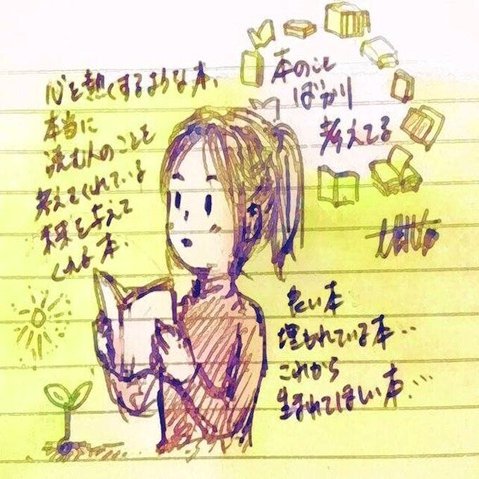 心を熱くするような本、
本当に
読む人のことを
考えてくれている
未来を与えて
くれる本、
本のこと
ばかり
考えてる
良い本
埋もれている本‥
これから
生まれてほしい本‥‥